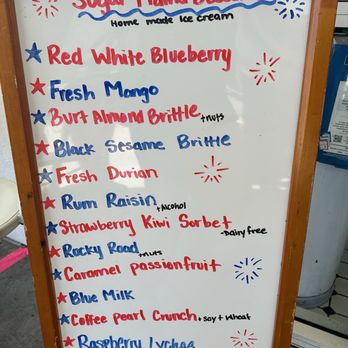 Sugar Mama
Home made Ice cream
Red White Blueberry
Fresh Mango
Burt Almond Brittle +nuts
Black Sesame Brittle
Fresh Durian
Rum Raisin +Alcohol
Strawberry Kiwi Sorbet -Dairy free
Rocky Road +nuts
Caramel passionfruit
Blue Milk
Coffee pearl Crunch +soy+wheat
Raspberry Lychee